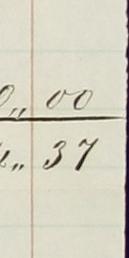 0,, 00
,, 37